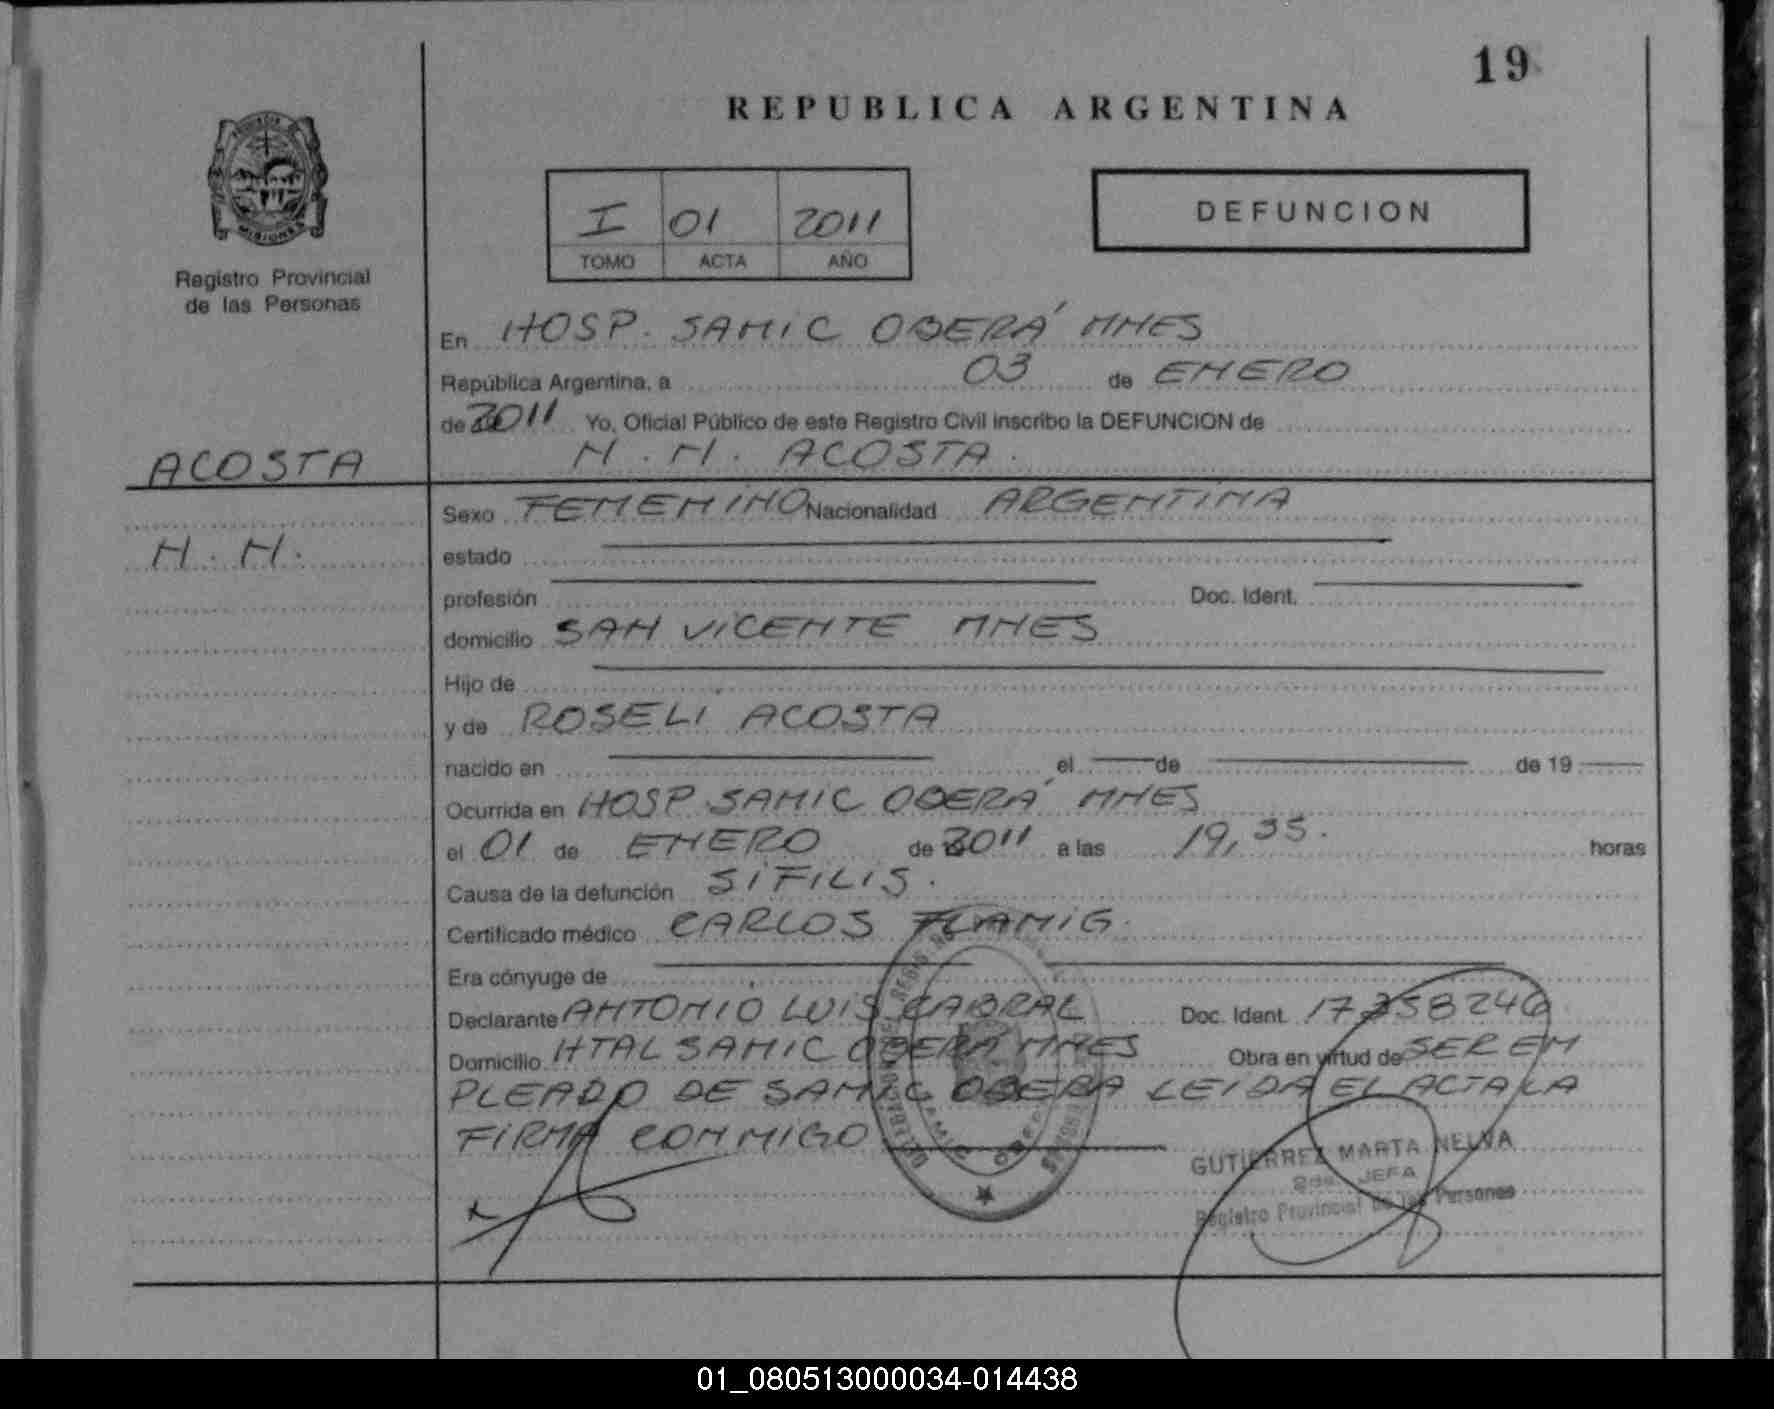 19
REPUBLICA ARGENTINA
PROVINCIA DE
MISIONES
Registro Provincial
de las Personas
I 01 2011
TOMO ACTA AÑO
DEFUNCION
En HOSP. SAMIC OBERÁ MNES
República Argentina, a 03 de ENERO
de 2011 Yo, Oficial Público de este Registro Civil inscribo la DEFUNCION de
N. N. ACOSTA.
ACOSTA
N. N.
Sexo FEMENINO Nacionalidad ARGENTINA
estado
profesión Doc. Ident.
domicilio SAN VICENTE MNES
Hijo de
y de ROSELI ACOSTA
nacido en el de de 19
Ocurrida en HOSP. SAMIC OBERÁ MNES
el 01 de ENERO de 2011 a las 19,35. horas
Causa de la defunción SIFILIS.
Certificado médico CARLOS FLAMIG.
Era cónyuge de
Declarante ANTONIO LUIS CABRAL Doc. Ident. 17358246
Domicilio HTAL SAMIC OBERÁ MNES Obra en virtud de SER EM
PLEADO DE SAMIC OBERA LEIDA EL ACTA LA
FIRMA CONMIGO
GUTIERREZ MARTA NELVA
2da. JEFA
Registro Provincial de las Personas
01_080513000034-014438